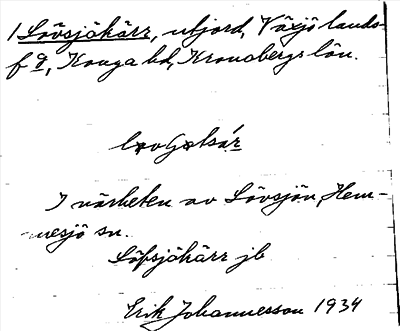 1 Lövsjökärr, utjord, Växjö lands-
f g, Konga hd, Kronobergs län.
I närheten av Lövsjön, Hem-
mesjö sn.
Löfsjökärr jb
Erik Johannesson 1934